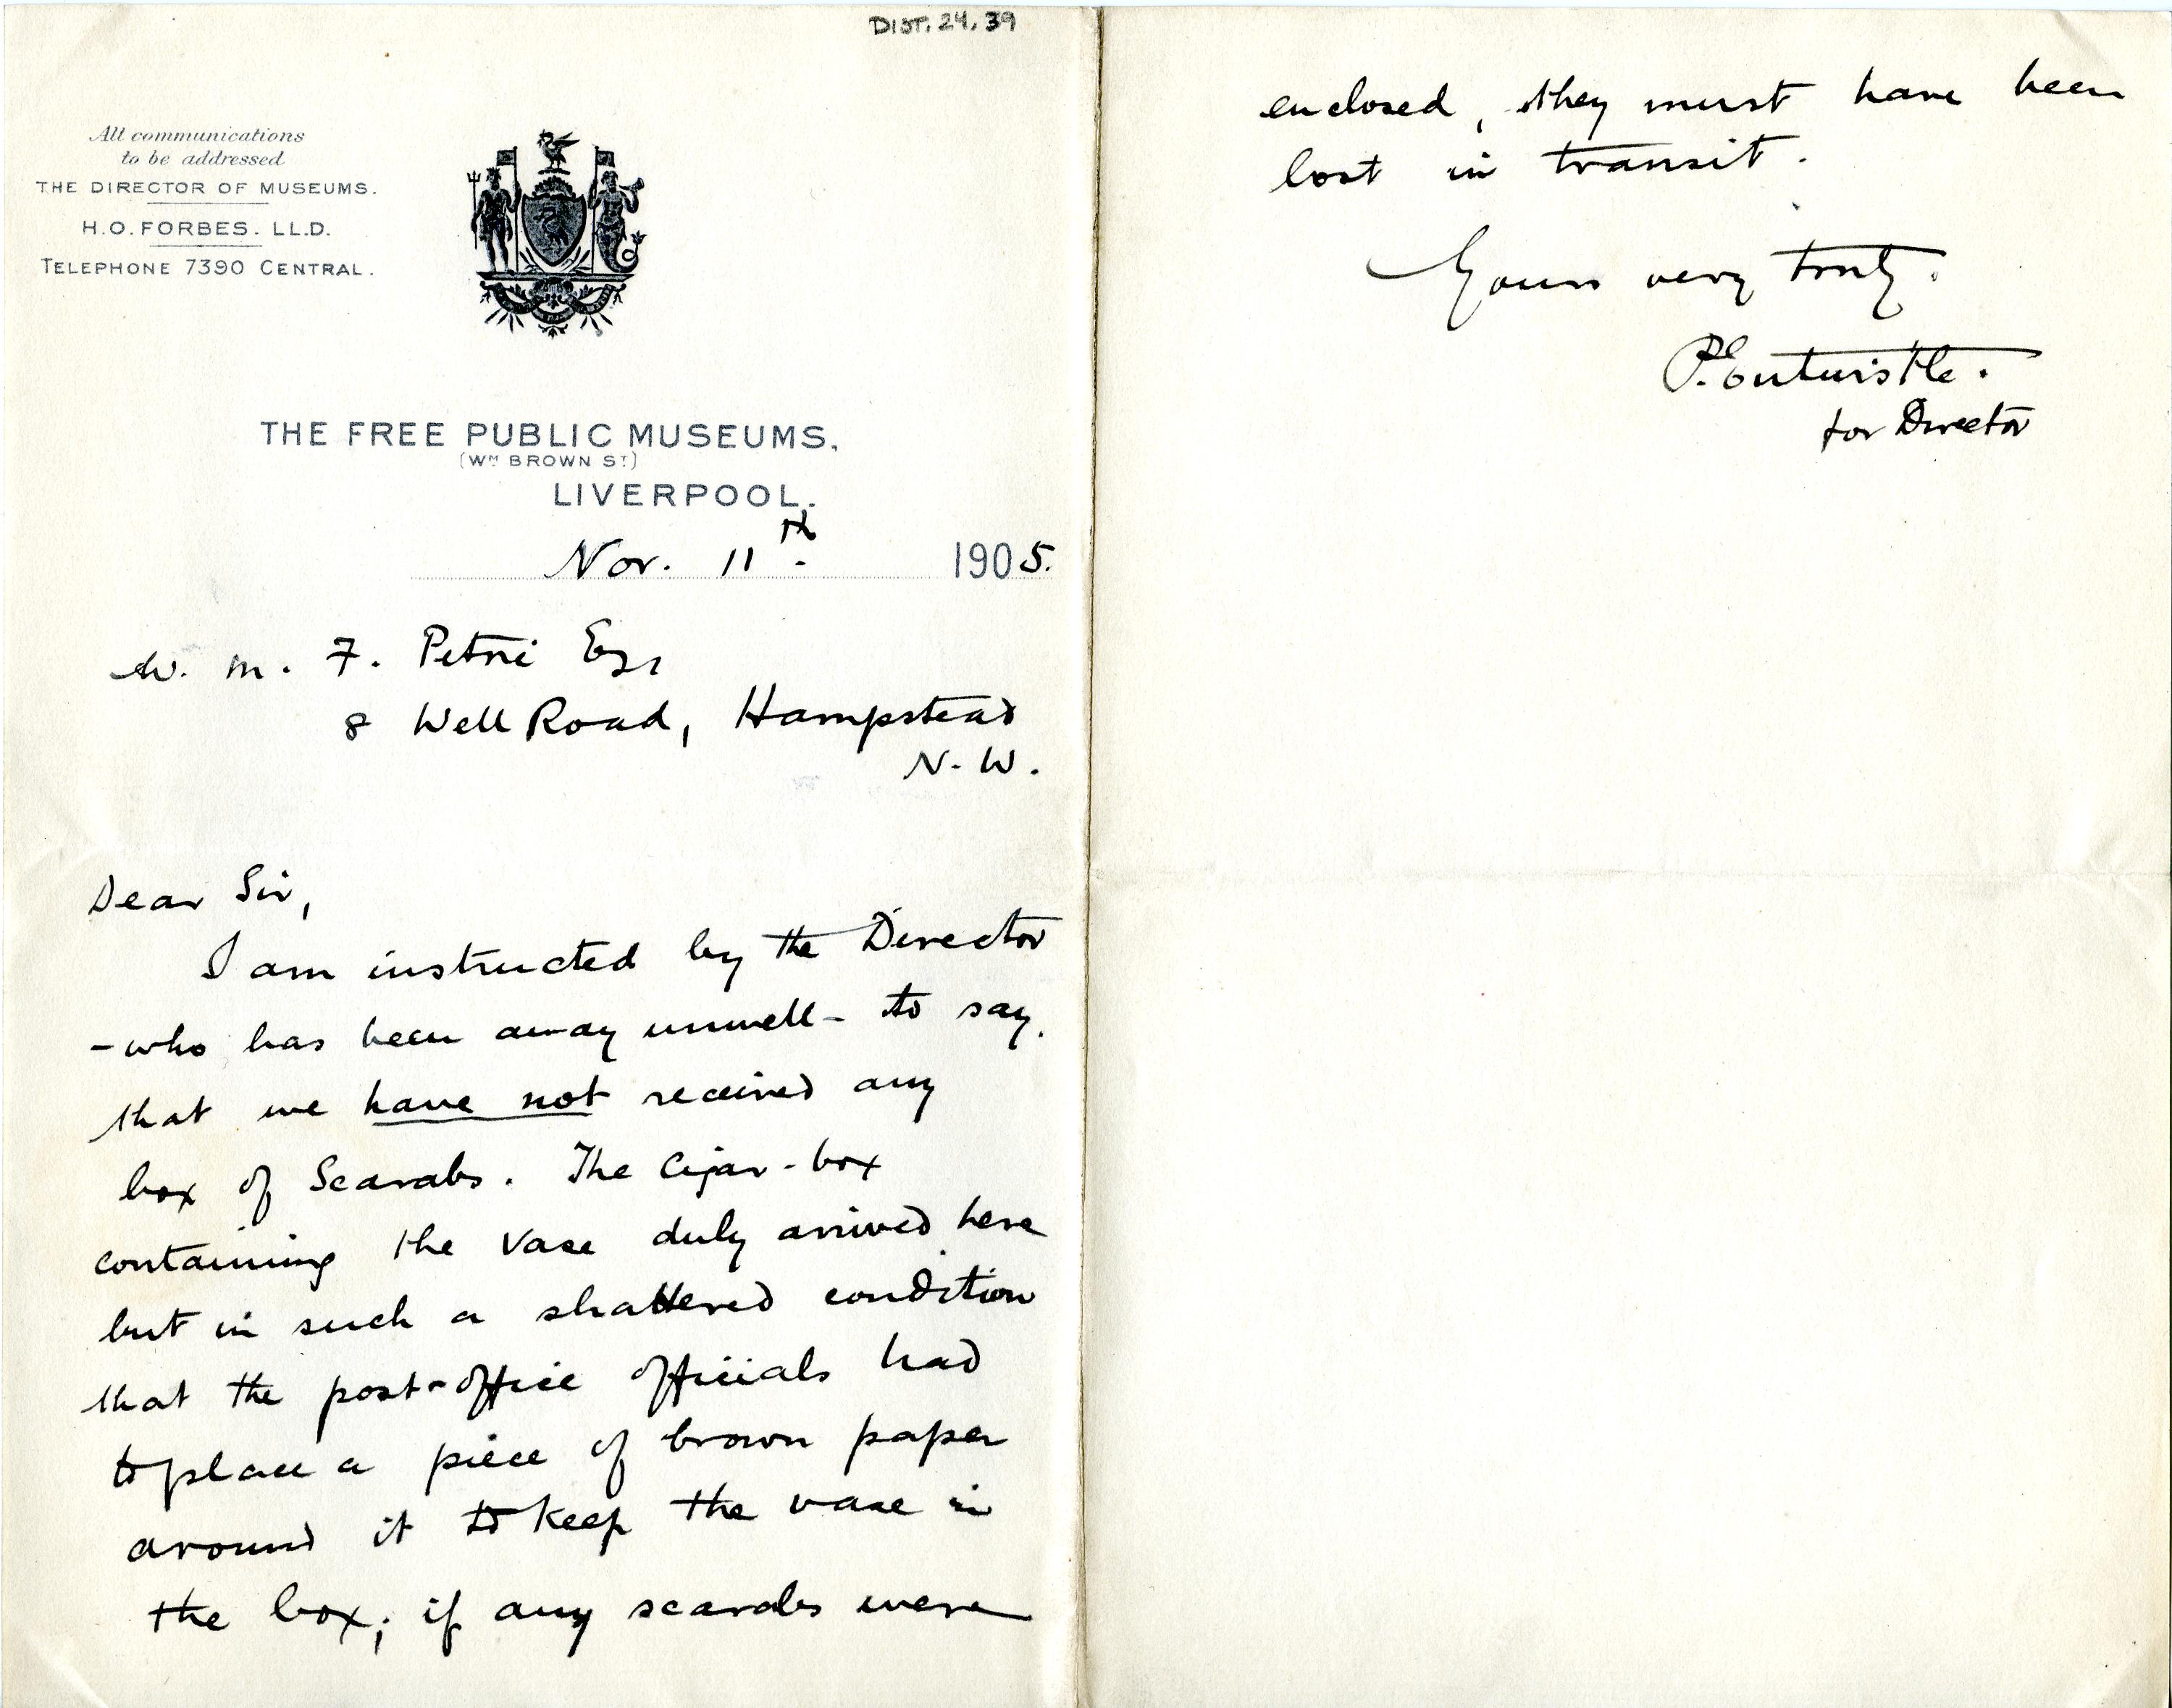 DIST. 24. 39
All communications
to be addressed
THE DIRECTOR OF MUSEUMS.
H.O. FORBES. LL.D.
TELEPHONE 7390 CENTRAL.
THE FREE PUBLIC MUSEUMS.
(WM BROWN ST)
LIVERPOOL.
Nov. 11th. 1905.
W. M. F. Petrie Esq
8 Well Road, Hampstead
N. W.
Dear Sir,
I am instructed by the Director
- who has been away unwell - to say.
that we have not received any
box of Scarabs. The cigar-box
containing the vase duly arrived here
but in such a shattered condition
that the post-office officials had
to place a piece of brown paper
around it to keep the vase in
the box; if any scarabs were
enclosed, they must have been
lost in transit.
Yours very truly.
P. Entwistle.
for Director